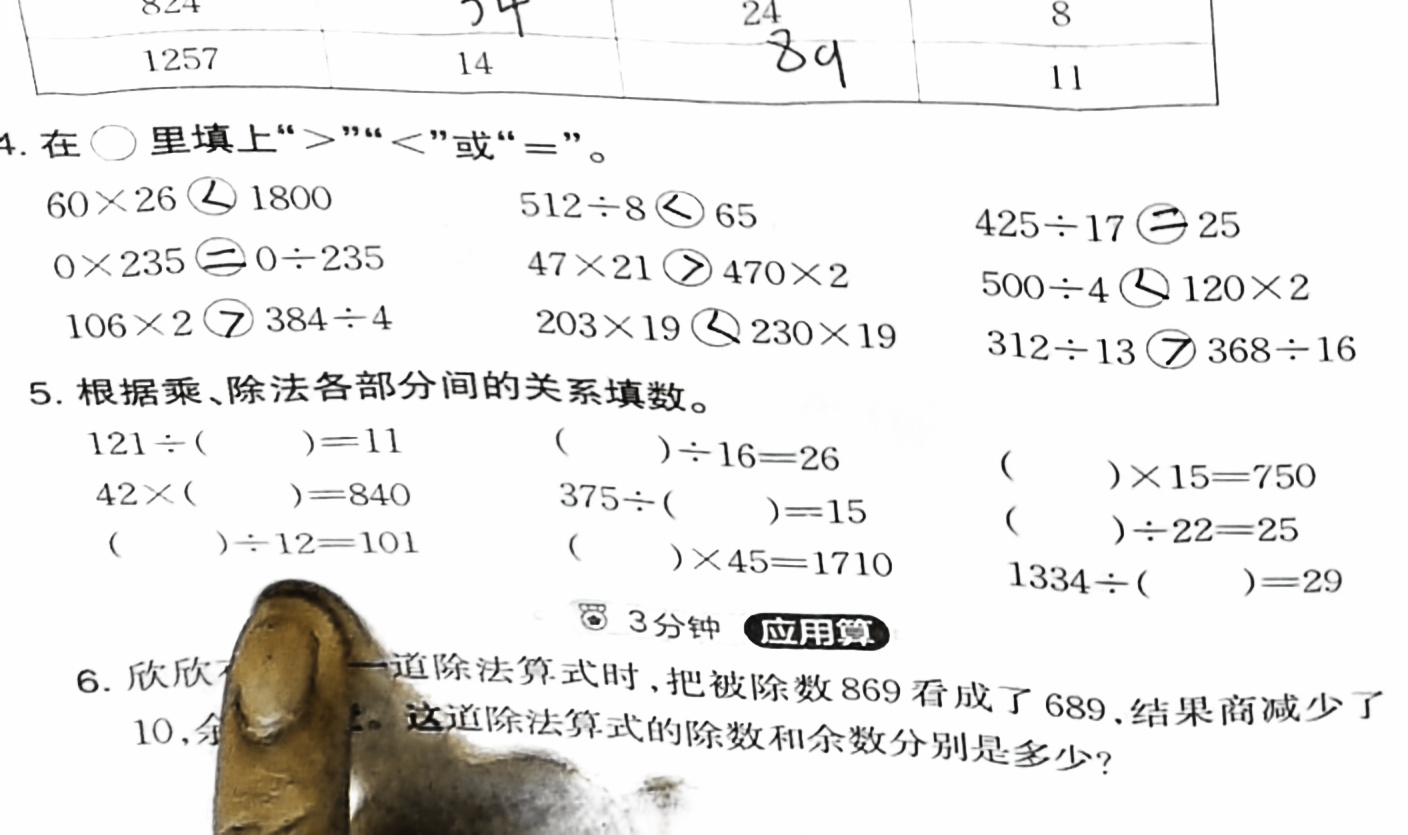 824 34 24 8
1257 14 89 11
4. 在 ○ 里填上“>”“<”或“=”。
60×26 < 1800 512÷8 < 65 425÷17 = 25
0×235 = 0÷235 47×21 > 470×2 500÷4 < 120×2
106×2 > 384÷4 203×19 < 230×19 312÷13 > 368÷16
5. 根据乘、除法各部分间的关系填数。
121÷( )=11 ( )÷16=26 ( )×15=750
42×( )=840 375÷( )=15 ( )÷22=25
( )÷12=101 ( )×45=1710 1334÷( )=29
3分钟 应用算
6. 欣欣 一道除法算式时,把被除数869看成了689,结果商减少了
10, 。这道除法算式的除数和余数分别是多少?